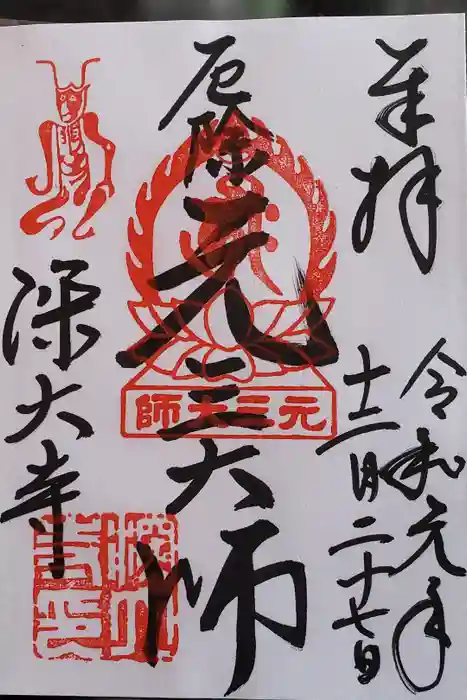 奉拝
令和元年
十二月二十七日
厄除
元三大師
元三大師
深大寺